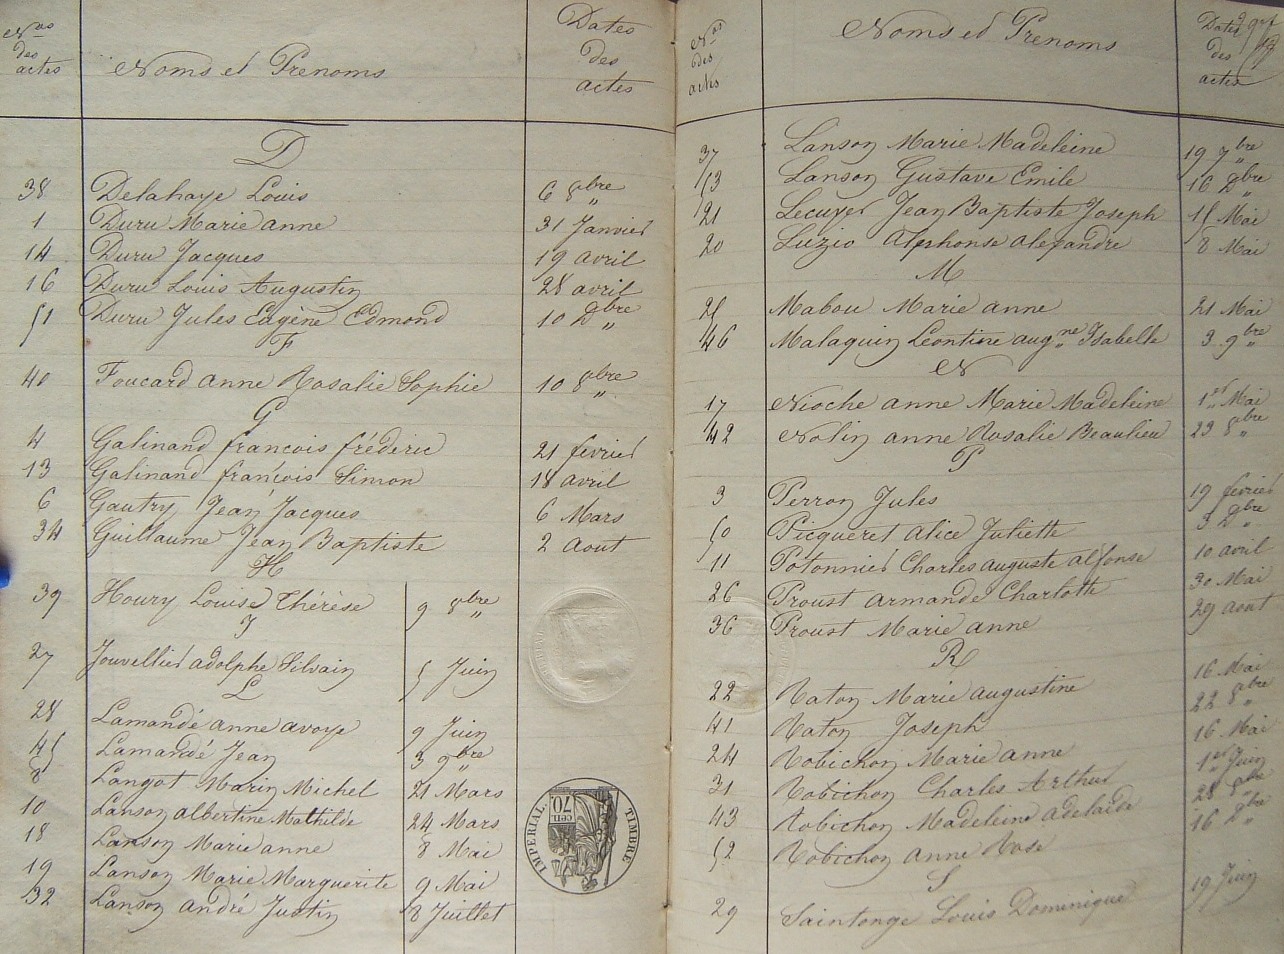 Nos des actes | Noms et Prenoms | Dates des actes
D
38 Delahaye Louis 6 8bre „
1 Duru Marie anne 31 Janvier
14 Duru Jacques 19 avril
16 Duru Louis Augustin 28 avril
51 Duru Jules Eugène Edmond 10 Dbre „
F
40 Foucard anne Rosalie Sophie 10 8bre „
G
4 Galinand francois fréderic 21 fevrier
13 Galinand francois Simon 18 avril
6 Gautry Jean Jacques 6 Mars
34 Guillaume Jean Baptiste 2 Aout
H
39 Houry Louise Thérèse 9 8bre „
J
27 Jouvellier adolphe Silvain 5 Juin
L
28 Lamandé anne avoye 9 Juin
45 Lamandé Jean 3 9bre „
8 Langot Marin Michel 21 Mars
10 Lanson albertine Mathilde 24 Mars
18 Lanson Marie anne 8 Mai
19 Lanson Marie Marguerite 9 Mai
32 Lanson andré Justin 8 Juillet
TIMBRE IMPERIAL
70 cen
Nos des actes | Noms et Prenoms | Dates des actes
37 Lanson Marie Madeleine 19 7bre „
53 Lanson Gustave Emile 16 Dbre „
21 Lecuyer Jean Baptiste Joseph 15 Mai
20 Luzio Alphonse alexandre 8 Mai
M
25 Mabou Marie anne 21 Mai
46 Malaquin Leontine augne Isabelle 3 9bre „
N
17 Nioche anne Marie Madeleine 1er Mai
42 Nolin anne Rosalie Beaulieu 23 8bre „
P
3 Perron Jules 19 fevrier
50 Picqueret alice Juliette 3 Dbre „
11 Potonnier Charles auguste alfonse 10 avril
26 Proust armande Charlotte 30 Mai
36 Proust Marie anne 29 aout
R
22 Raton Marie augustine 16 Mai
41 Raton Joseph 22 8bre „
24 Robichon Marie anne 16 Mai
31 Robichon Charles Arthur 1er Juin
43 Robichon Madeleine adelaide 28 8bre
52 Robichon Anne Rose 16 Dbre „
S
29 Saintonge Louis Dominique 19 Juin